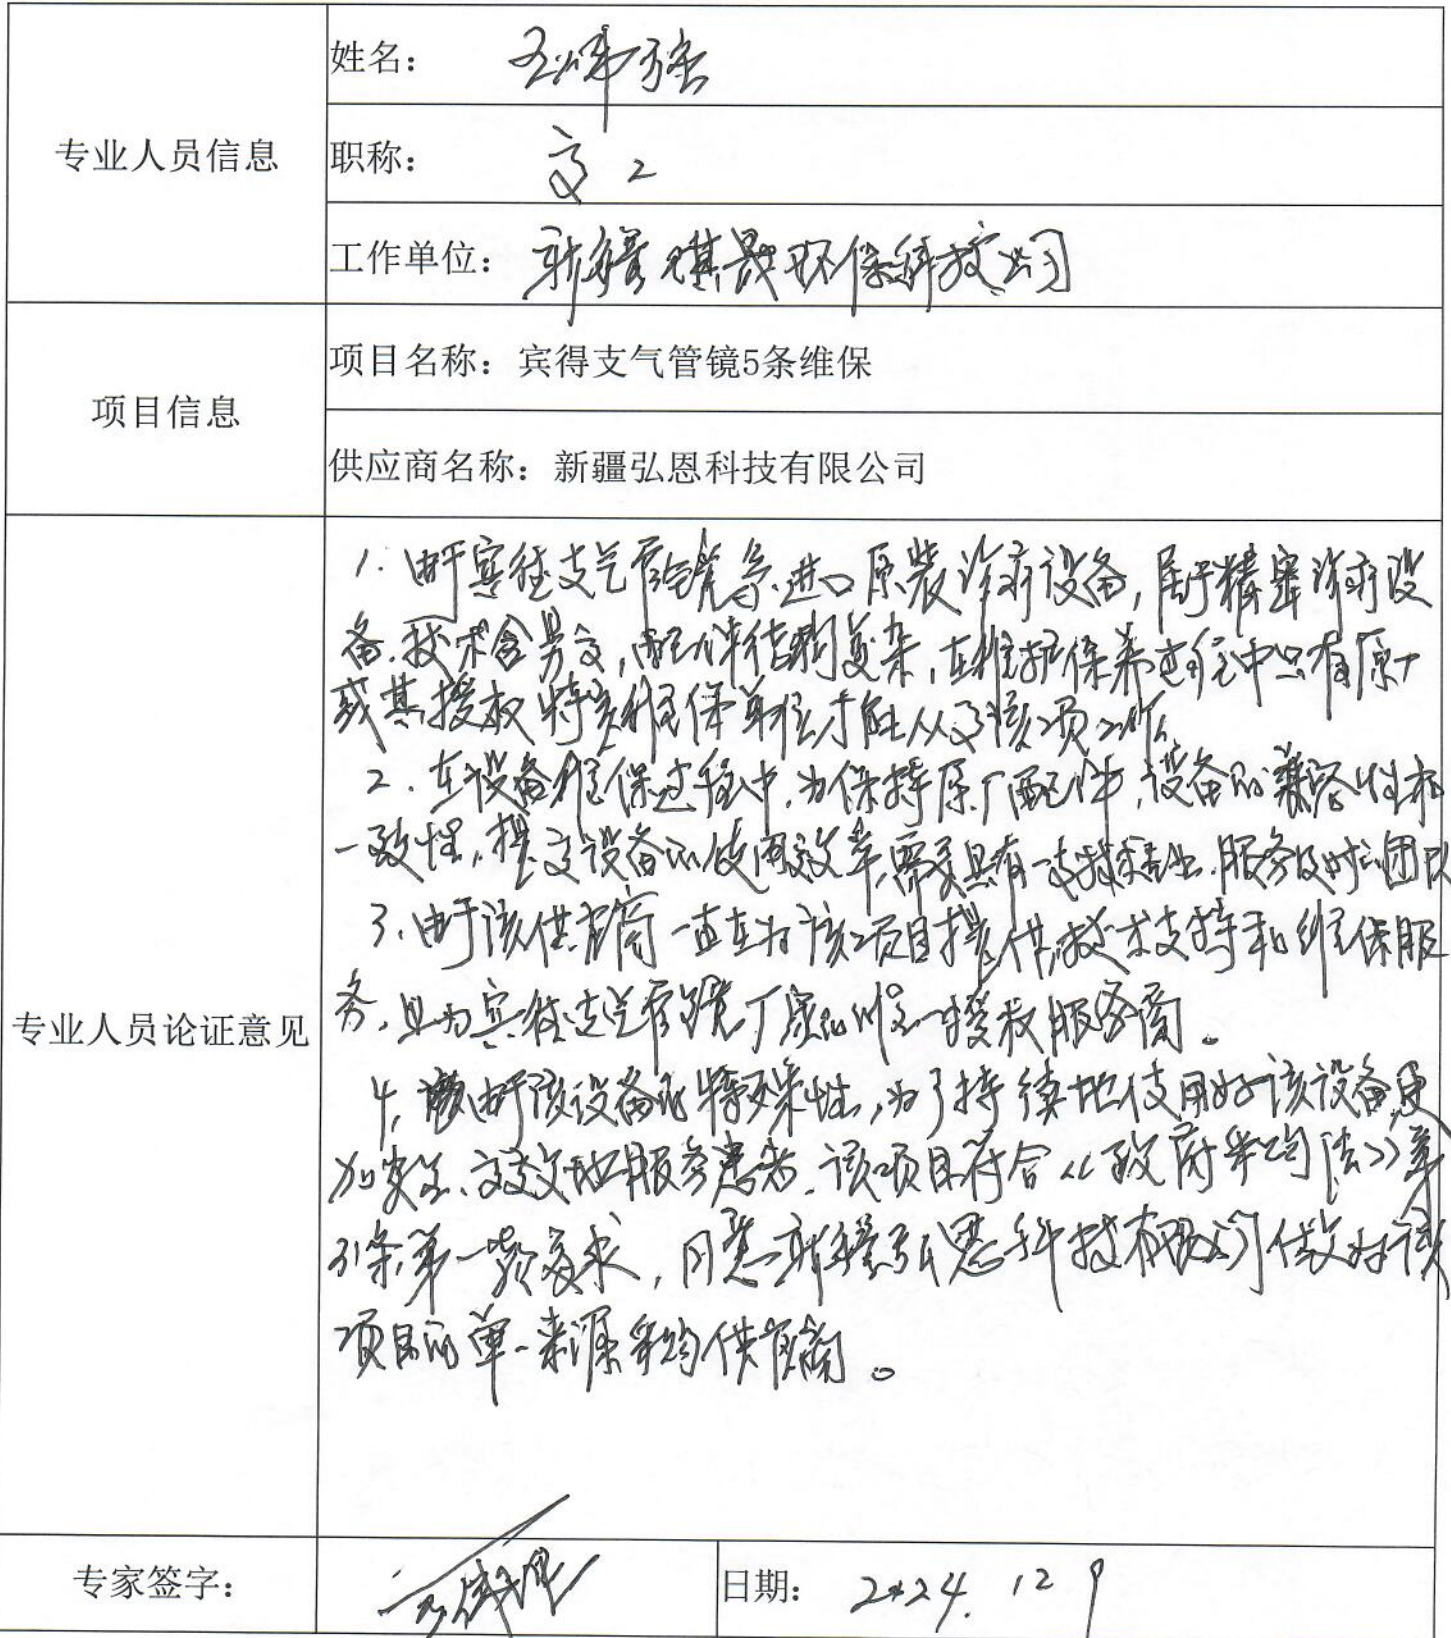 专业人员信息
姓名：
职称：高工
工作单位：新疆 环保科技公司
项目信息
项目名称：宾得支气管镜5条维保
供应商名称：新疆弘恩科技有限公司
专业人员论证意见
1. 由于宾得支气管镜为进口原装诊疗设备，属于精密诊疗设
备，技术含量高，配件结构复杂，在维护保养过程中只有原厂
或其授权特约维保单位才能从事该项工作。
2. 在设备维保过程中，为保持原厂配件，设备的兼容性和
一致性，提高设备的使用效率，需要具有一支技术专业、服务及时的团队
3、由于该供应商一直在为该项目提供技术支持和维保服
务，且为宾得支气管镜厂家的唯一授权服务商。
4、由于该设备的特殊性，为了持续地使用好该设备，更
加安全、高效地服务患者，该项目符合《政府采购法》第
31条第一款要求，同意新疆弘恩科技有限公司做为该
项目的单一来源采购供应商。
专家签字：
日期：2024.12 9